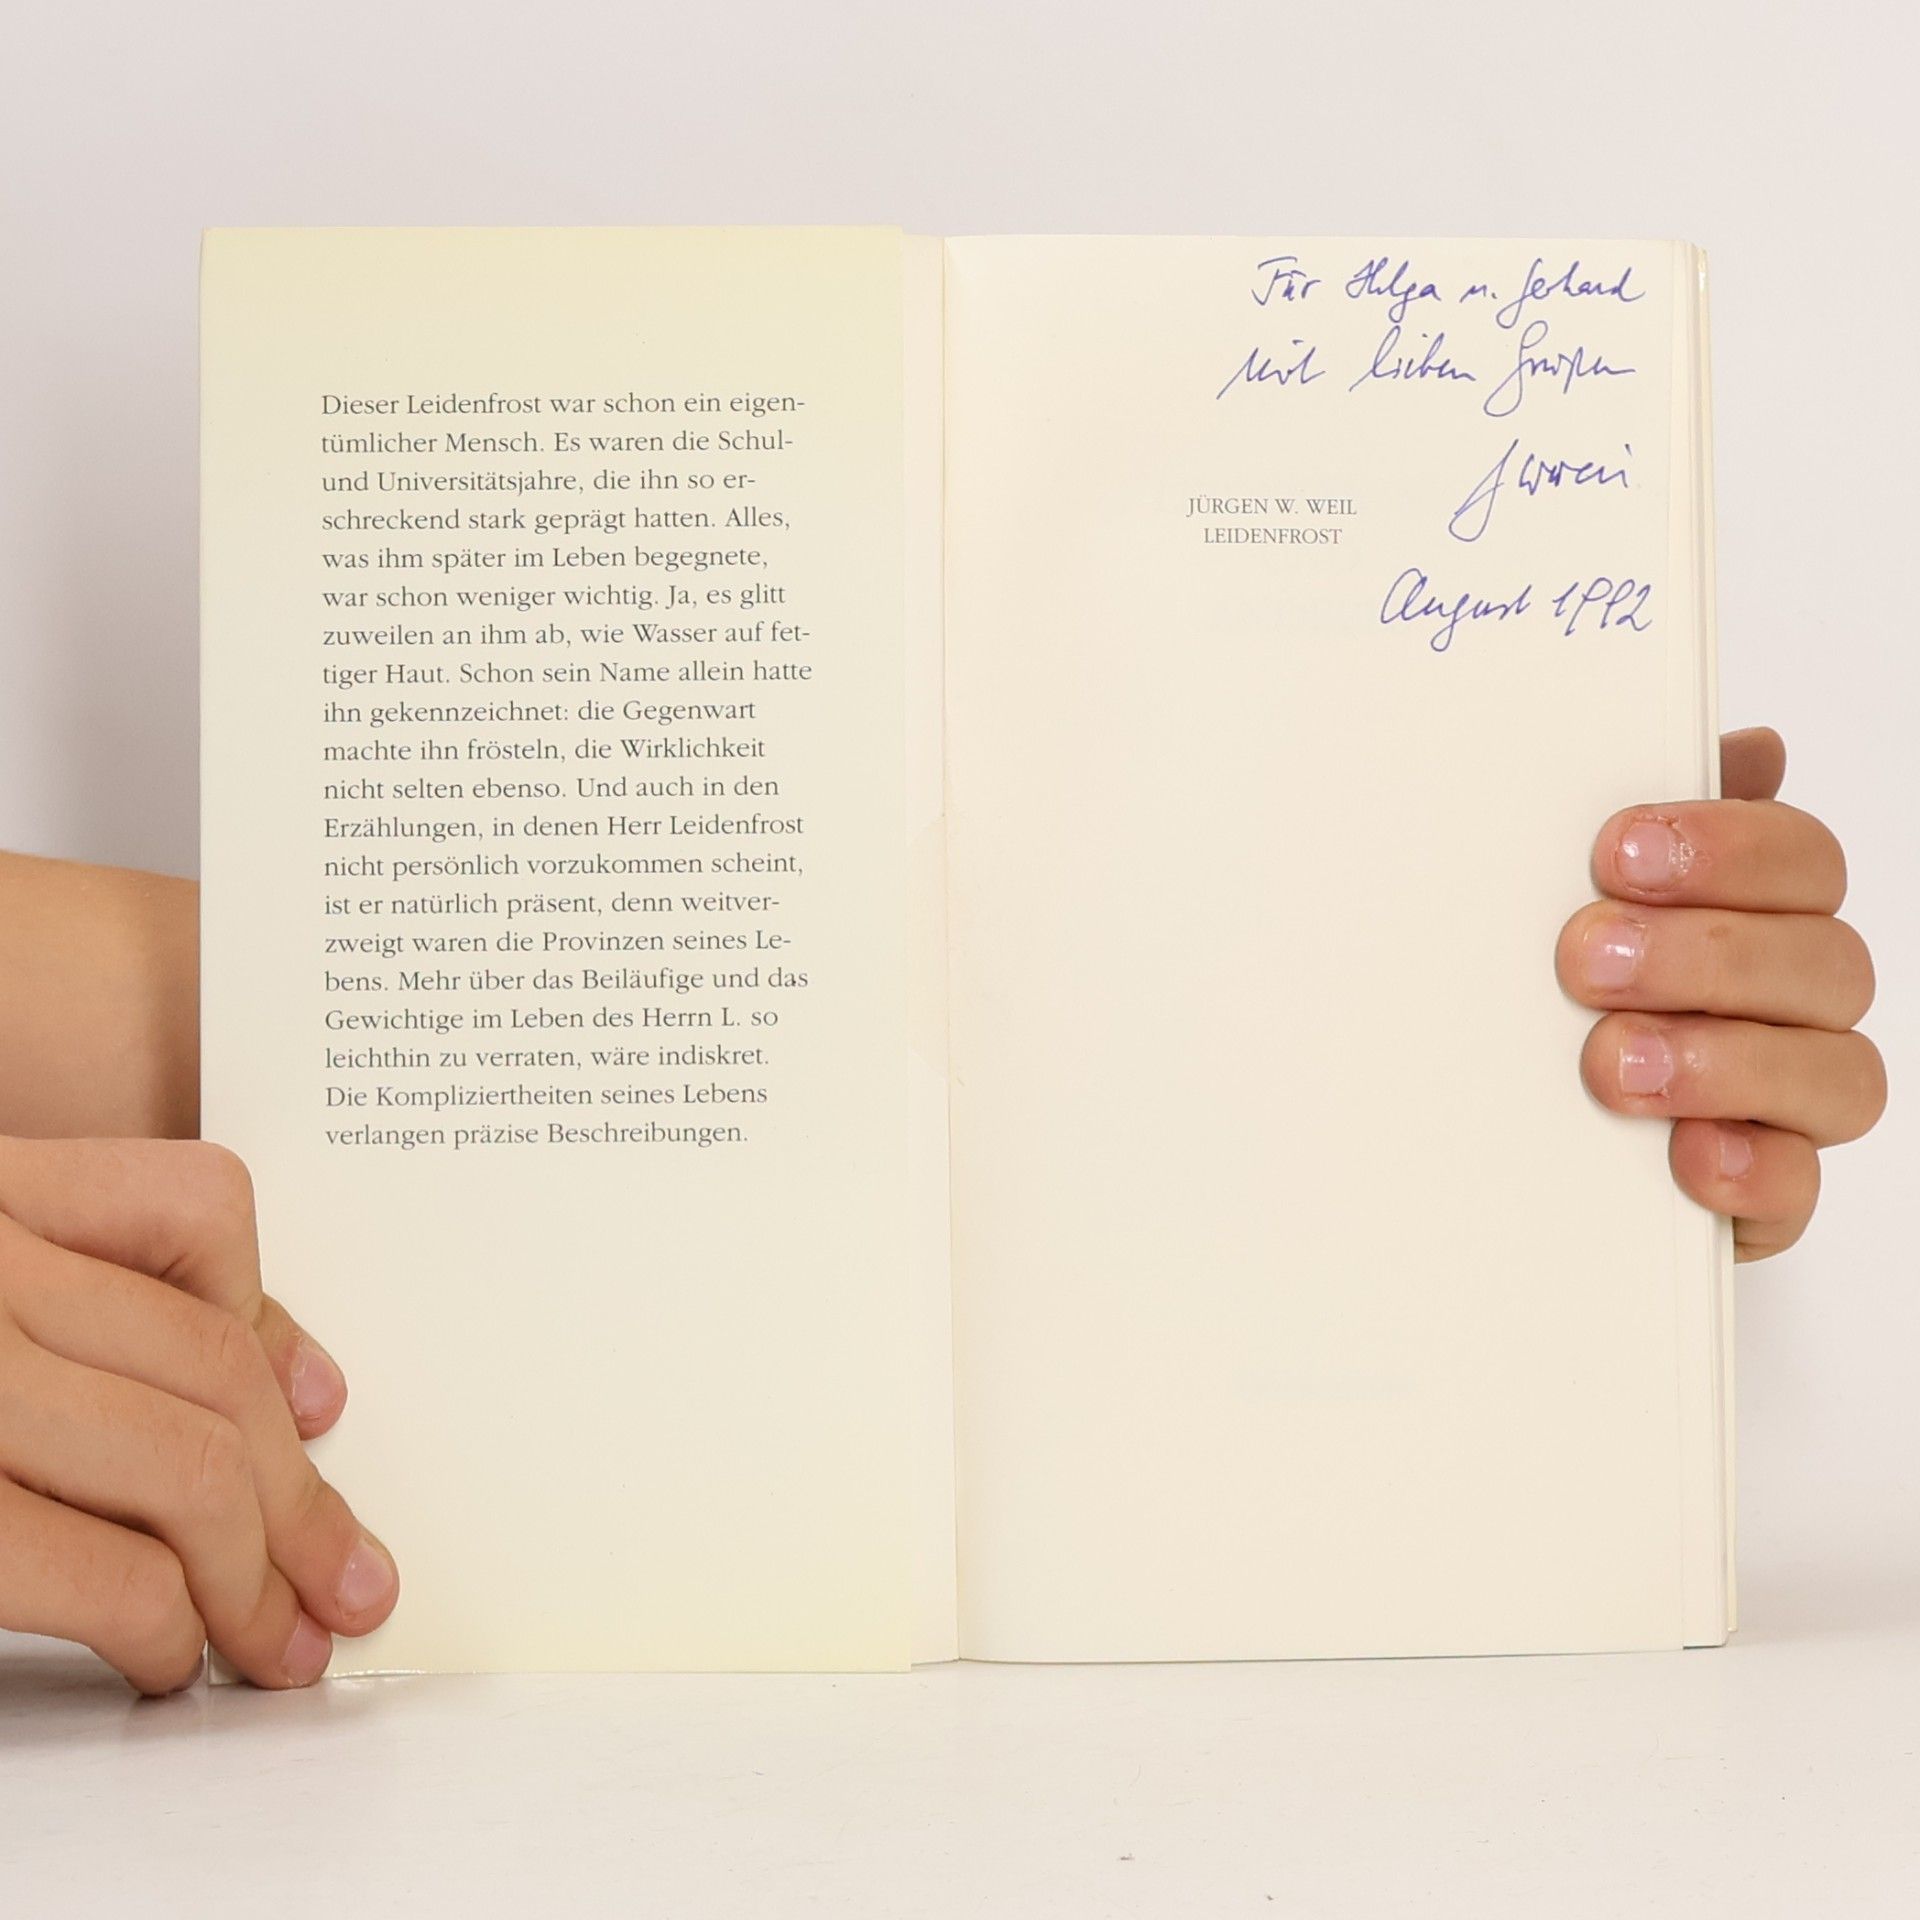 Dieser Leidenfrost war schon ein eigen-
tümlicher Mensch. Es waren die Schul-
und Universitätsjahre, die ihn so er-
schreckend stark geprägt hatten. Alles,
was ihm später im Leben begegnete,
war schon weniger wichtig. Ja, es glitt
zuweilen an ihm ab, wie Wasser auf fet-
tiger Haut. Schon sein Name allein hatte
ihn gekennzeichnet: die Gegenwart
machte ihn frösteln, die Wirklichkeit
nicht selten ebenso. Und auch in den
Erzählungen, in denen Herr Leidenfrost
nicht persönlich vorzukommen scheint,
ist er natürlich präsent, denn weitver-
zweigt waren die Provinzen seines Le-
bens. Mehr über das Beiläufige und das
Gewichtige im Leben des Herrn L. so
leichthin zu verraten, wäre indiskret.
Die Kompliziertheiten seines Lebens
verlangen präzise Beschreibungen.
Für Helga u. Gerhard
mit lieben Grüßen
JÜRGEN W. WEIL
LEIDENFROST
August 1992